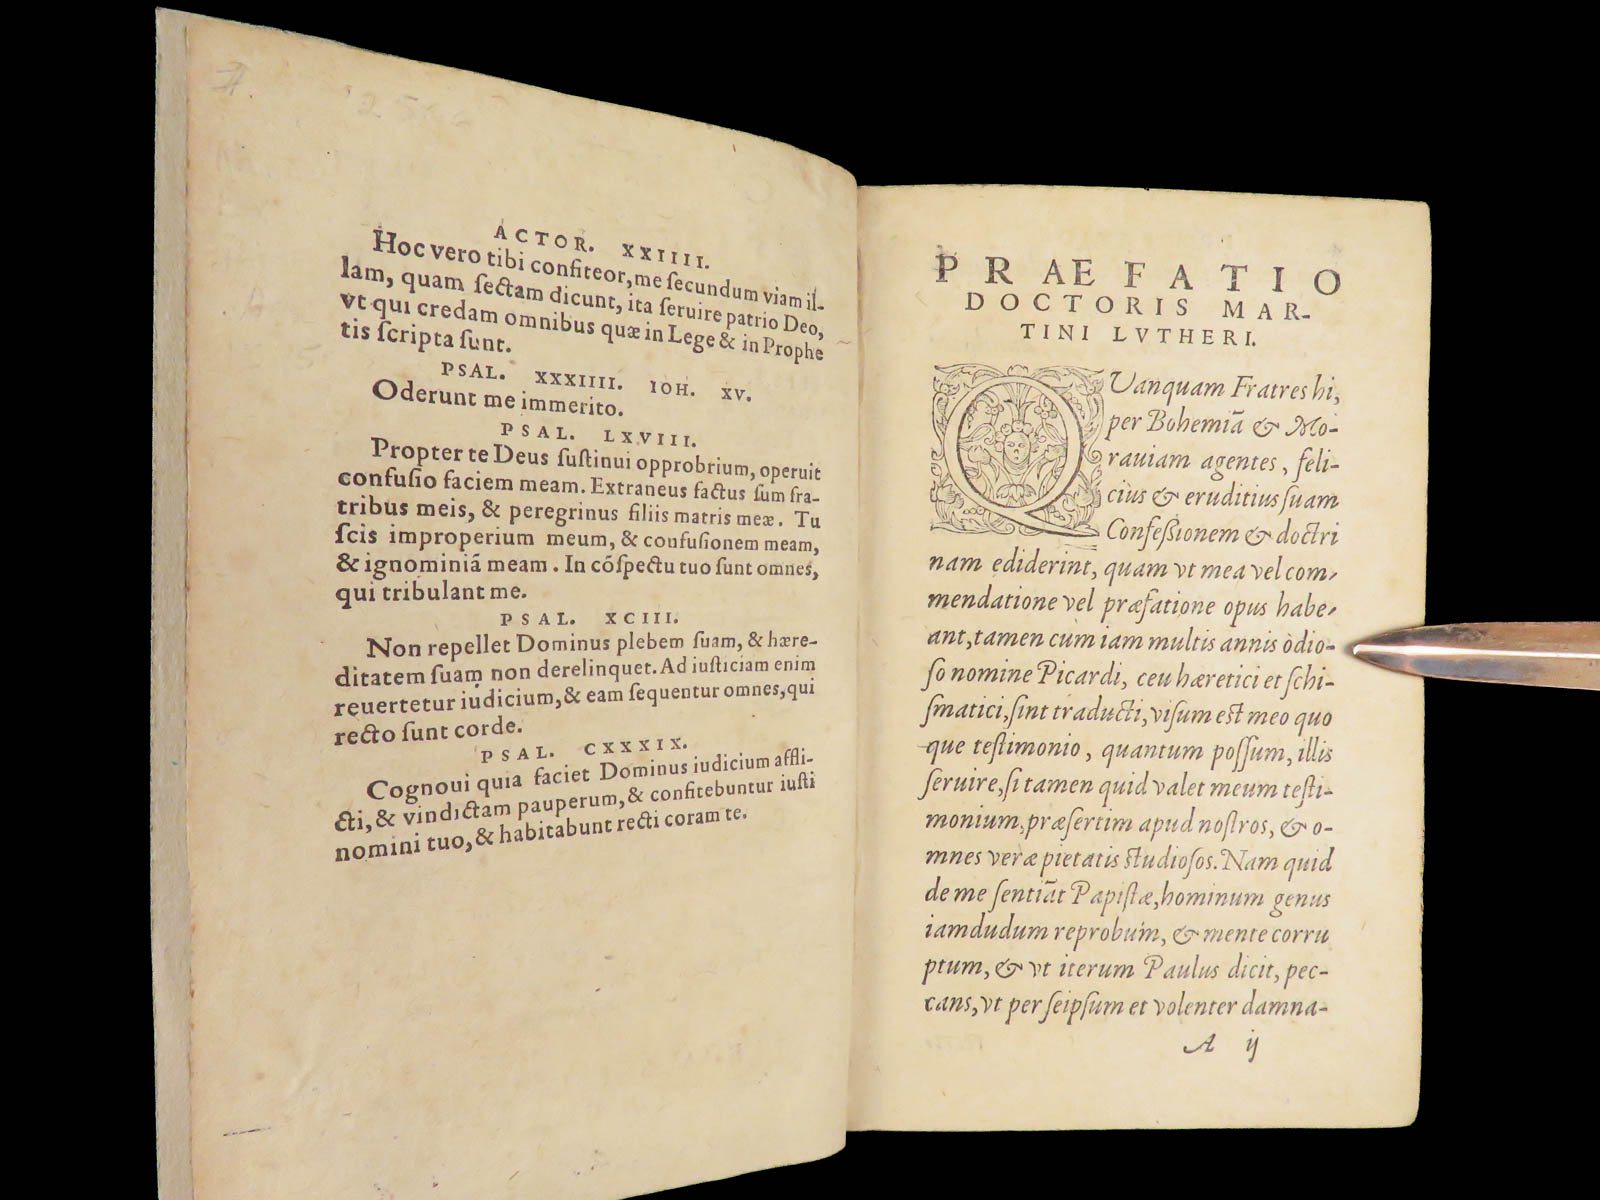 ACTOR. XXIIII.
Hoc vero tibi confiteor, me ſecundum viam il-
lam, quam ſectam dicunt, ita ſeruire patrio Deo,
vt qui credam omnibus quæ in Lege & in Prophe
tis ſcripta ſunt.
PSAL. XXXIIII. IOH. XV.
Oderunt me immerito.
PSAL. LXVIII.
Propter te Deus ſuſtinui opprobrium, operuit
confuſio faciem meam. Extraneus factus ſum fra-
tribus meis, & peregrinus filiis matris meæ. Tu
ſcis improperium meum, & confuſionem meam,
& ignominiã meam. In cõſpectu tuo ſunt omnes,
qui tribulant me.
PSAL. XCIII.
Non repellet Dominus plebem ſuam, & hære-
ditatem ſuam non derelinquet. Ad iuſticiam enim
reuertetur iudicium, & eam ſequentur omnes, qui
recto ſunt corde.
PSAL. CXXXIX.
Cognoui quia faciet Dominus iudicium affli-
cti, & vindictam pauperum, & confitebuntur iuſti
nomini tuo, & habitabunt recti coram te.
PRAEFATIO
DOCTORIS MAR-
TINI LVTHERI.
QVanquam Fratres hi,
per Bohemiã & Mo-
rauiam agentes, feli-
cius & eruditius ſuam
Confeſsionem & doctri
nam ediderint, quam vt mea vel com-
mendatione vel præfatione opus habe-
ant, tamen cum iam multis annis òdio-
ſo nomine Picardi, ceu hæretici et ſchi-
ſmatici, ſint traducti, viſum eſt meo quo
que teſtimonio, quantum poſſum, illis
ſeruire, ſi tamen quid valet meum teſti-
monium, præſertim apud noſtros, & o-
mnes veræ pietatis ſtudioſos. Nam quid
de me ſentiãt Papiſtæ, hominum genus
iamdudum reprobum, & mente corru
ptum, & vt iterum Paulus dicit, pec-
cans, vt per ſeipſum et volenter damna-
A ij